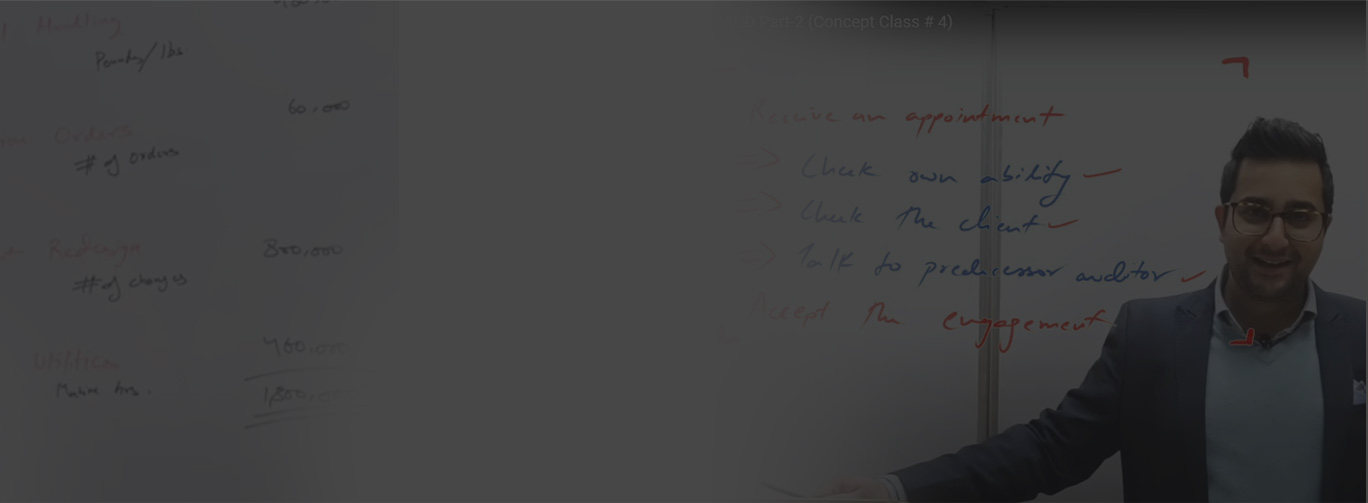 Handling
Pounds/lbs
60,000
Orders
# of orders
Redesign
800,000
# of changes
Utilities
400,000
Machine hrs.
1,800,000
Part-2 (Concept Class # 4)
Receive an appointment
=> Check own ability
=> Check the client
=> Talk to predecessor auditor
Accept the engagement